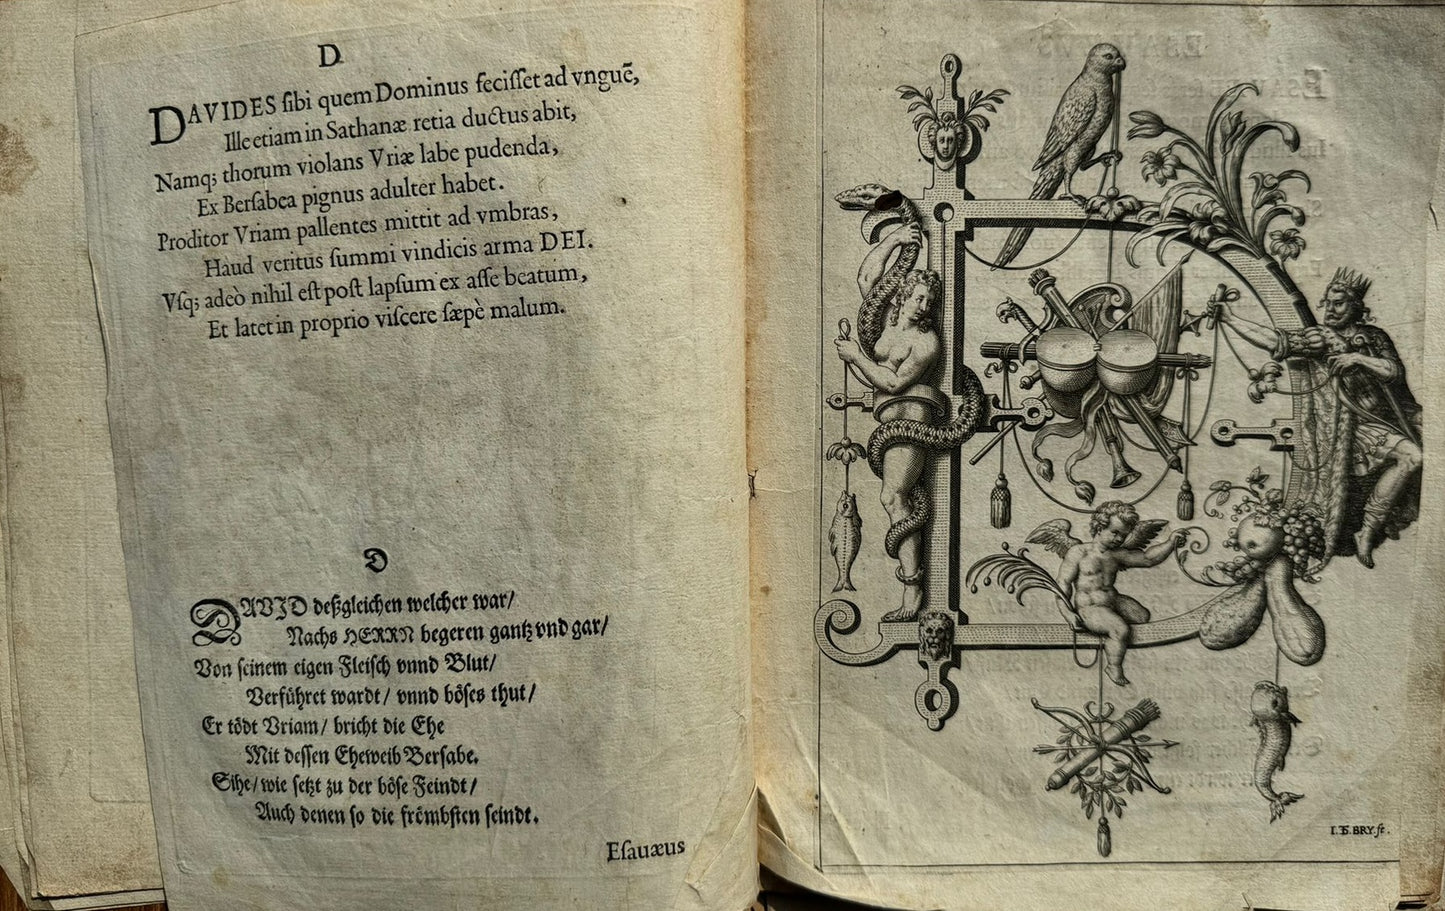 D
DAVIDES ſibi quem Dominus feciſſet ad vnguẽ,
Ille etiam in Sathanæ retia ductus abit,
Namq; thorum violans Vriæ labe pudenda,
Ex Berſabea pignus adulter habet.
Proditor Vriam pallentes mittit ad vmbras,
Haud veritus ſummi vindicis arma DEI.
Vſq; adeò nihil eſt poſt lapſum ex aſſe beatum,
Et latet in proprio viſcere ſæpè malum.
D
DAVID deßgleichen welcher war/
Nachs HERRN begeren gantz vnd gar/
Von ſeinem eigen Fleiſch vnnd Blut/
Verführet wardt/ vnnd böſes thut/
Er tödt Vriam/ bricht die Ehe
Mit deſſen Eheweib Berſabe.
Sihe/ wie ſetzt zu der böſe Feindt/
Auch denen ſo die frömbſten ſeindt.
Eſauæus
I. T. BRY. fe.